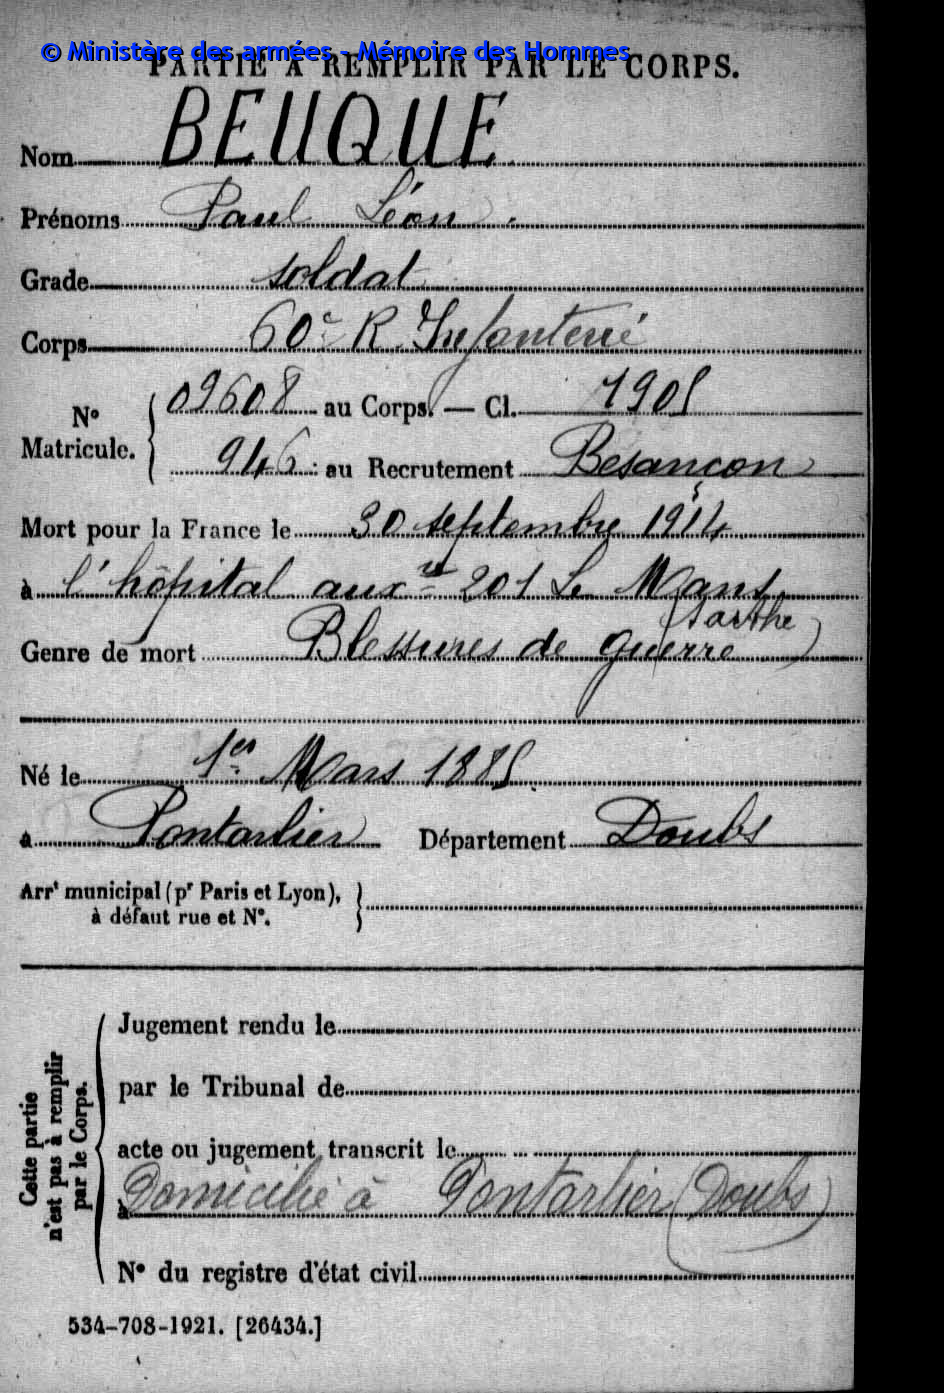 © Ministère des armées - Mémoire des Hommes
PARTIE À REMPLIR PAR LE CORPS.
Nom BEUQUE
Prénoms Paul Léon
Grade soldat
Corps 60e R. Infanterie
N° Matricule. 09608 au Corps. — Cl. 1905
946 au Recrutement Besançon
Mort pour la France le 30 septembre 1914
à l'hôpital auxre 201 Le Mans
(Sarthe)
Genre de mort Blessures de guerre
Né le 1er Mars 1885
à Pontarlier Département Doubs
Arrt municipal (pr Paris et Lyon),
à défaut rue et N°.
Cette partie
n'est pas à remplir
par le Corps.
Jugement rendu le
par le Tribunal de
acte ou jugement transcrit le
à Domicilié à Pontarlier (Doubs)
N° du registre d'état civil
534-708-1921. [26434.]